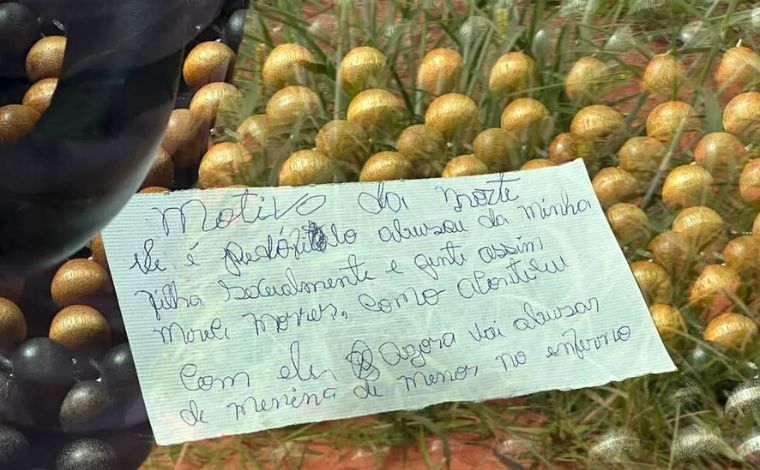 Motivo da morte
ele é pedófilo abusou da minha
filha sexualmente e gente assim
morrer, como aconteceu
com ele, agora vai abusar
de menina de menor no enferno